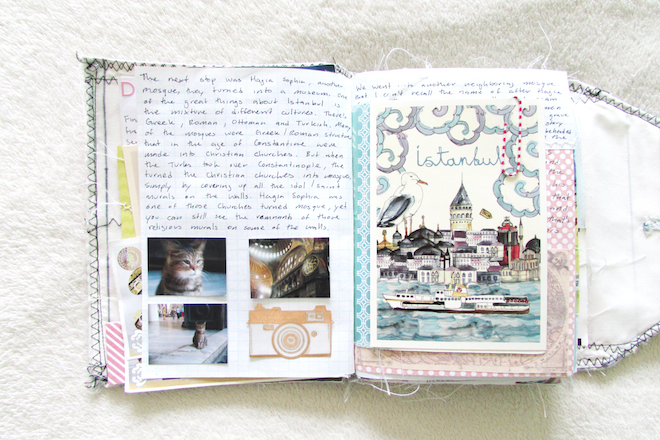 The next stop was Hagia Sophia, another
mosque, they turned into a museum. One
of the great things about Istanbul is
the mixture of different cultures. There's
Greek, Roman, Ottoman and Turkish. Many
of the mosques were Greek/Roman structures
that in the age of Constantine were
made into Christian churches. But when
the Turks took over Constantinople, the
turned the Christian churches into mosques
simply by covering up all the idol/saint
murals on the walls. Hagia Sophia was
one of those Churches turned mosque, yet
you can still see the remnants of those
religious murals on some of the walls.
We went to another neighboring mosque
but I can't recall the name of after Hagia
am
men
gave
istanbul
that
D